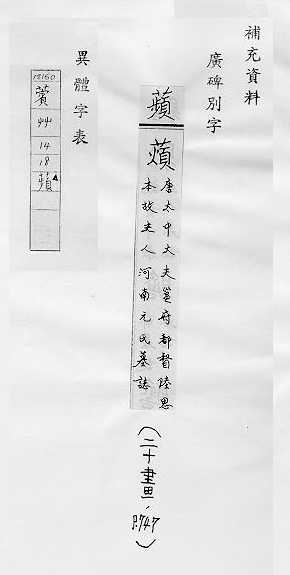 補充資料
廣碑別字
蘋
蘋
唐太中大夫邕府都督陸思
本故夫人河南元氏墓誌
（二十畫、P.747）
異體字表
薲
艸
14
18
蘋